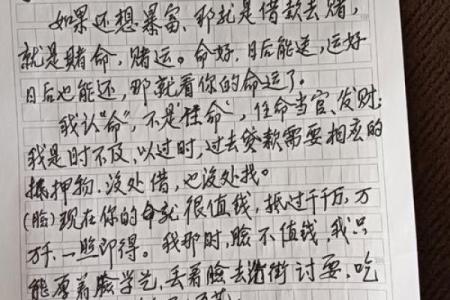 如果还想暴富、那就是借款去赌,
就是赌命,赌运。命好,日后能还,运好
日后也能还,那就看你的命运了。
我认“命”,不是‘任命’,任命当官、发财;
我是时不及、以过时,过去贷款需要相应的
抵押物、没处借,也没处找。
(脸)现在你的命就很值钱,抵过千千万,万
万千,一照即得。我那时,脸不值钱,我只
能厚着脸学艺,丢着脸去街讨要,吃